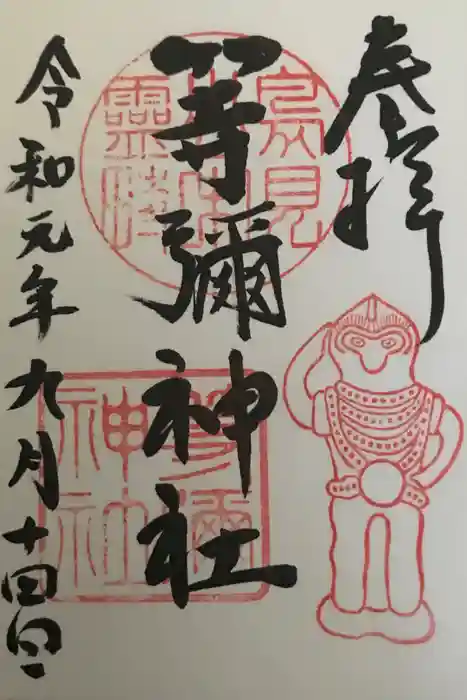 奉拝
等彌神社
令和元年九月十四日
鳥見山中靈畤
等彌神社